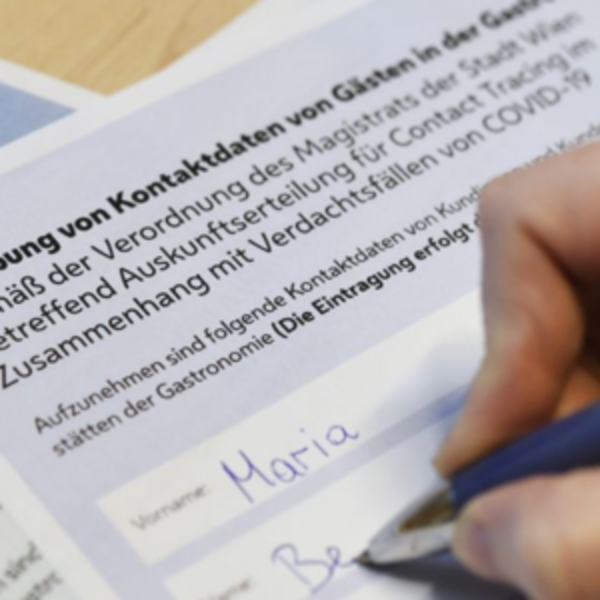 bung von Kontaktdaten von Gästen in der Gastro
mäß der Verordnung des Magistrats der Stadt Wien
etreffend Auskunftserteilung für Contact Tracing im
Zusammenhang mit Verdachtsfällen von COVID-19
Aufzunehmen sind folgende Kontaktdaten von Kundi und Kunde
stätten der Gastronomie (Die Eintragung erfolgt
Vorname: Maria
ame: Be
sind